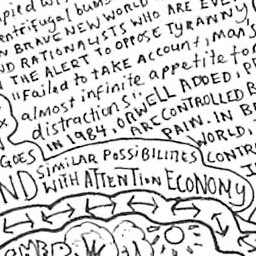 centrifugal bum
BRAVE NEW WORLD
RATIONALISTS WHO ARE EVE
THE ALERT TO OPPOSE TYRANNY
"Failed to take account, man's
almost infinite appetite for
distractions".
IN 1984, ORWELL ADDED, P
ARE CONTROLLED B
PAIN. IN B
WORLD,
CONTR
GOES
SIMILAR POSSIBILITIES
ND WITH ATTENTION ECONOMY